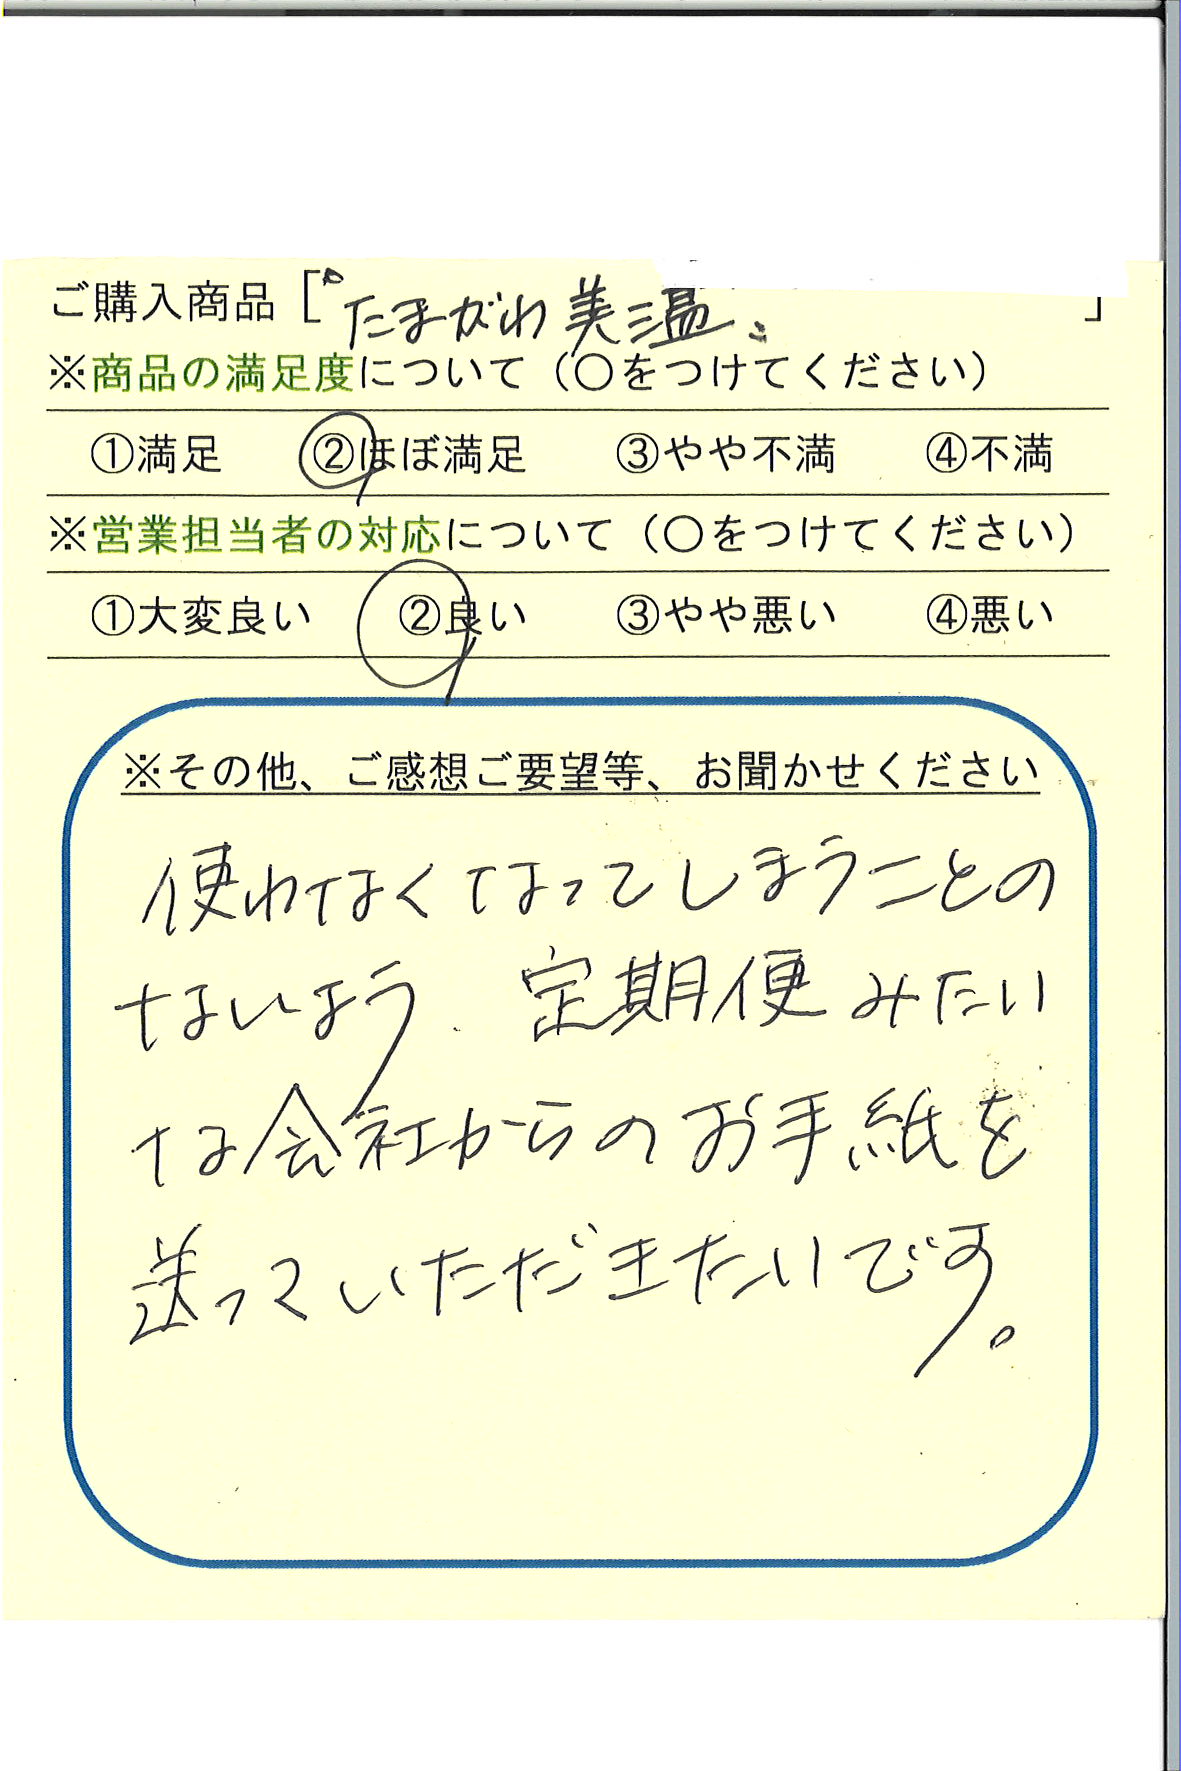 ご購入商品「たまがわ美温」
※商品の満足度について（○をつけてください）
①満足 ②ほぼ満足 ③やや不満 ④不満
※営業担当者の対応について（○をつけてください）
①大変良い ②良い ③やや悪い ④悪い
※その他、ご感想ご要望等、お聞かせください
使わなくなってしまうことの
ないよう、定期便みたい
な会社からのお手紙を
送っていただきたいです。